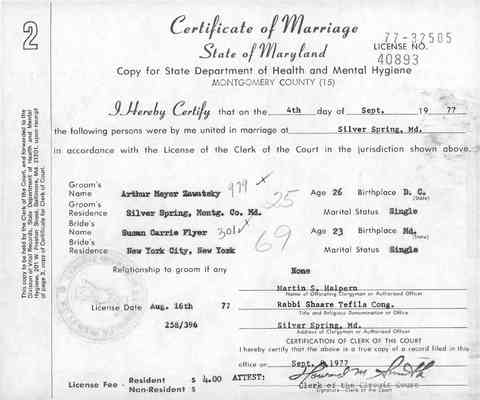 2
Certificate of Marriage
State of Maryland
77-32505
LICENSE NO.
40893
Copy for State Department of Health and Mental Hygiene
MONTGOMERY COUNTY (15)
I Hereby Certify that on the 4th day of Sept. 19 77
the following persons were by me united in marriage at Silver Spring, Md.
in accordance with the License of the Clerk of the Court in the jurisdiction shown above.
Groom's
Name Arthur Meyer Zawatsky 979 Age 26 Birthplace D. C.
(State)
Groom's
Residence Silver Spring, Montg. Co. Md. 25 Marital Status Single
Bride's
Name Susan Carrie Flyer 301 Age 23 Birthplace Md.
(State)
Bride's
Residence New York City, New York 69 Marital Status Single
Relationship to groom if any None
Martin S. Halpern
Name of Officiating Clergyman or Authorized Officer
License Date Aug. 16th 77 Rabbi Shaare Tefila Cong.
Title and Religious Denomination or Office
258/396 Silver Spring, Md.
Address of Clergyman or Authorized Officer
CERTIFICATION OF CLERK OF THE COURT
I hereby certify that the above is a true copy of a record filed in this
office on Sept. 1977
License Fee - Resident $ 4.00 ATTEST: Howard M. Smith
Non-Resident $ Clerk of the Circuit Court
Signature-Clerk of the Court
This copy to be held by the Clerk of the Court, and forwarded to the
Division of Vital Records, State Department of Health and Mental
Hygiene, 201 W. Preston Street, Baltimore, Md. 21201, upon receipt
of page 3, copy of Certificate for Clerk of Court.